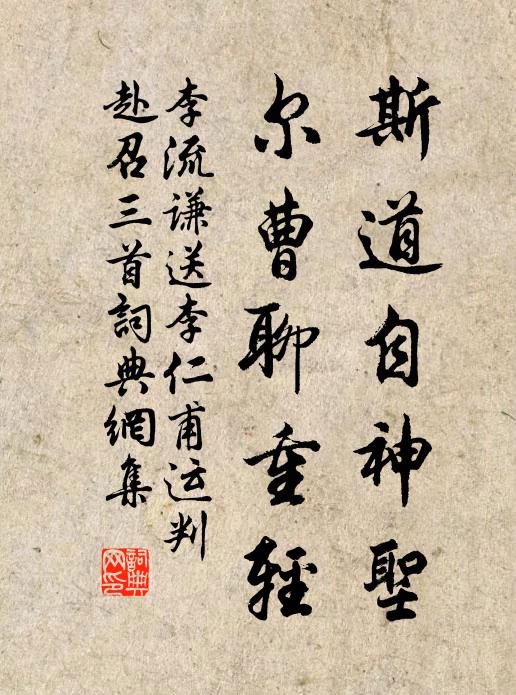 斯道自神聖
尔曹聊重輕
李流謙送李仁甫运判
赴召三首詞典網集
詞典网印